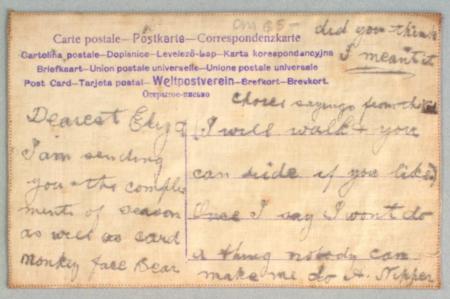 Om 65-
did you think
I meant it
Carte postale — Postkarte — Correspondenzkarte
Cartolina postale — Dopisnice — Levelező-Lap — Karta korespondancyjna
Briefkaart — Union postale universelle — Unione postale universale
Post Card — Tarjeta postal — Weltpostverein — Brefkort — Brevkort.
Открытое письмо
Dearest Eliza
I am sending
you the comple
ments of season
as well as card
Monkey face Bear
sayings from the
I will walk & you
can ride if you like
Once I say I wont do
a thing nobody can
make me do A. Nipper